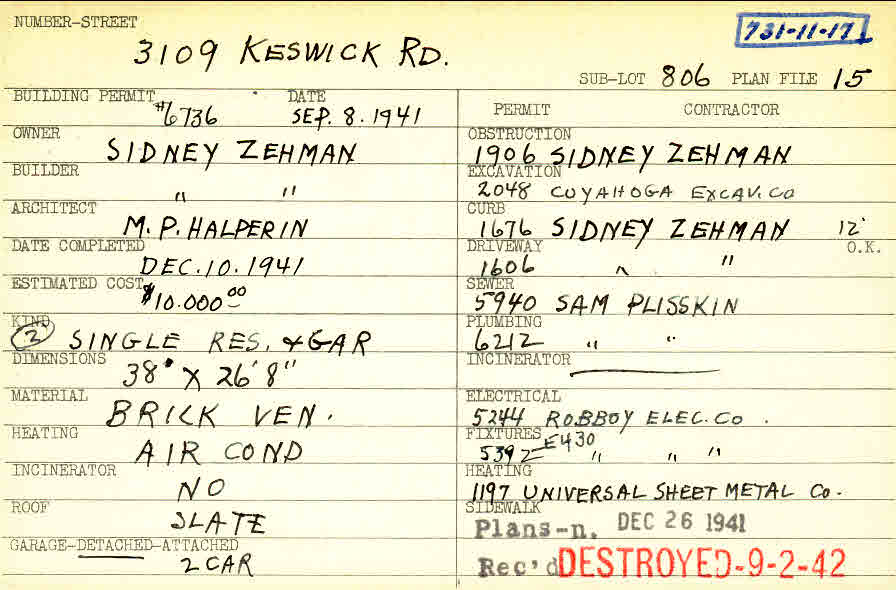 NUMBER-STREET
3109 KESWICK RD.
731-11-17
SUB-LOT 806 PLAN FILE 15
BUILDING PERMIT #6736 DATE SEP. 8. 1941
OWNER
SIDNEY ZEHMAN
BUILDER
" "
ARCHITECT
M. P. HALPERIN
DATE COMPLETED
DEC. 10. 1941
ESTIMATED COST $10.000 00
KIND
2 SINGLE RES. & GAR
DIMENSIONS
38' X 26' 8"
MATERIAL
BRICK VEN.
HEATING
AIR COND
INCINERATOR
NO
ROOF
SLATE
GARAGE-DETACHED-ATTACHED
2 CAR
PERMIT CONTRACTOR
OBSTRUCTION
1906 SIDNEY ZEHMAN
EXCAVATION
2048 CUYAHOGA EXCAV. CO
CURB
1676 SIDNEY ZEHMAN 12'
DRIVEWAY O.K.
1606 " "
SEWER
5940 SAM PLISSKIN
PLUMBING
6212 " "
INCINERATOR
ELECTRICAL
5244 ROBBOY ELEC. CO.
FIXTURES E430
5392 " " "
HEATING
1197 UNIVERSAL SHEET METAL CO.
SIDEWALK
Plans-n. DEC 26 1941
Rec'd DESTROYED-9-2-42